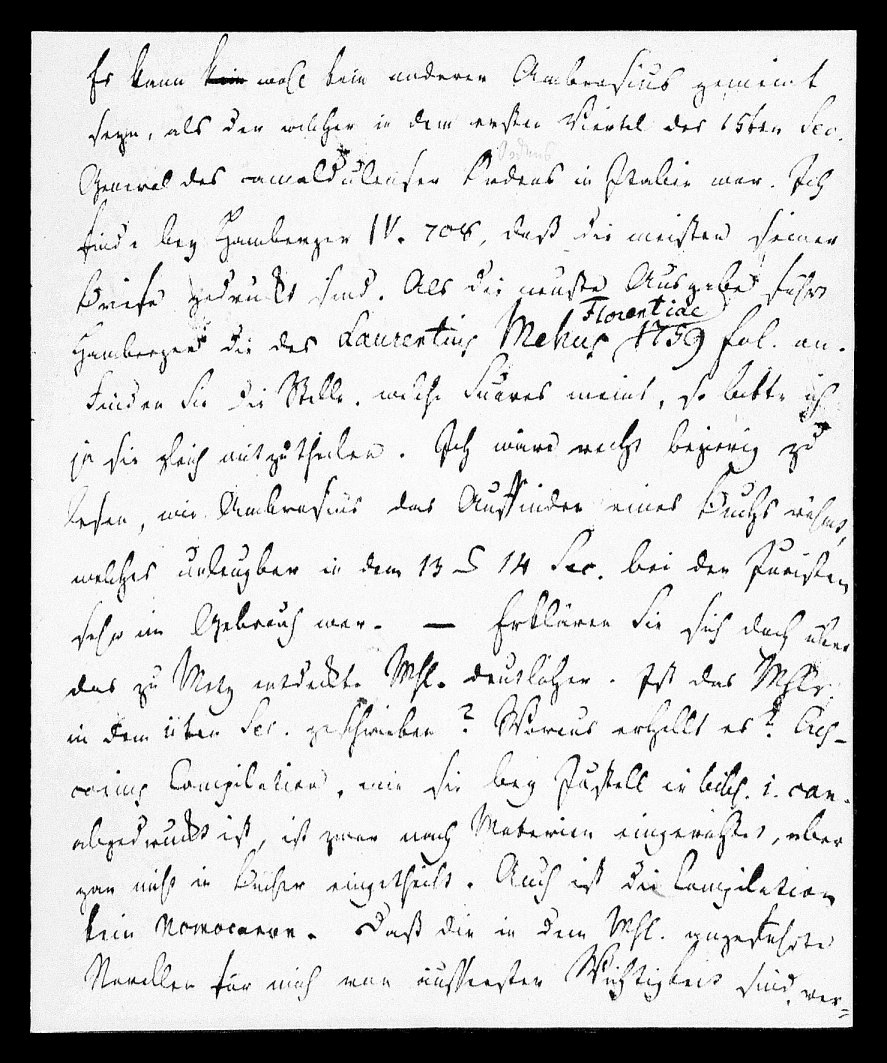 Es kann kein wohl kein anderer Ambrosius gemeint
seyn, als der welcher in dem ersten Viertel des 15ten Sec.
Ordens
General des camaldulenser Ordens in Italien war. Ich
finde bey Hamberger IV. 708, daß die meisten seiner
Briefe gedruckt sind. Als die neuste Ausgabe führt
Florentiae
Hamberger die des Laurentius Mehus 1759 fol. an.
Finden Sie die Stelle, welche Suares meint, so bitte ich
ja sie gleich mitzutheilen. Ich wäre recht begierig zu
lesen, wie Ambrosius das Auffinden eines Buchs rühmt,
welches unleugbar in dem 13 14 Sec. bei den Juristen
sehr im Gebrauch war. — Erklären Sie sich doch über
das zu Metz entdeckte Msc. deutlicher. Ist das Msc.
in dem 11ten Sec. geschrieben? Woraus erhellt es?
Compilation, wie sie bey Justell in bibl. i. can.
abgedruckt ist, ist zwar nach Materien eingerichtet, aber
gar nicht in Bücher eingetheilt. Auch ist die Compilation
kein Nomocanon. Daß die in dem Msc. angeführte
Novellen für mich von äussersten Wichtigkeit sind, ver=